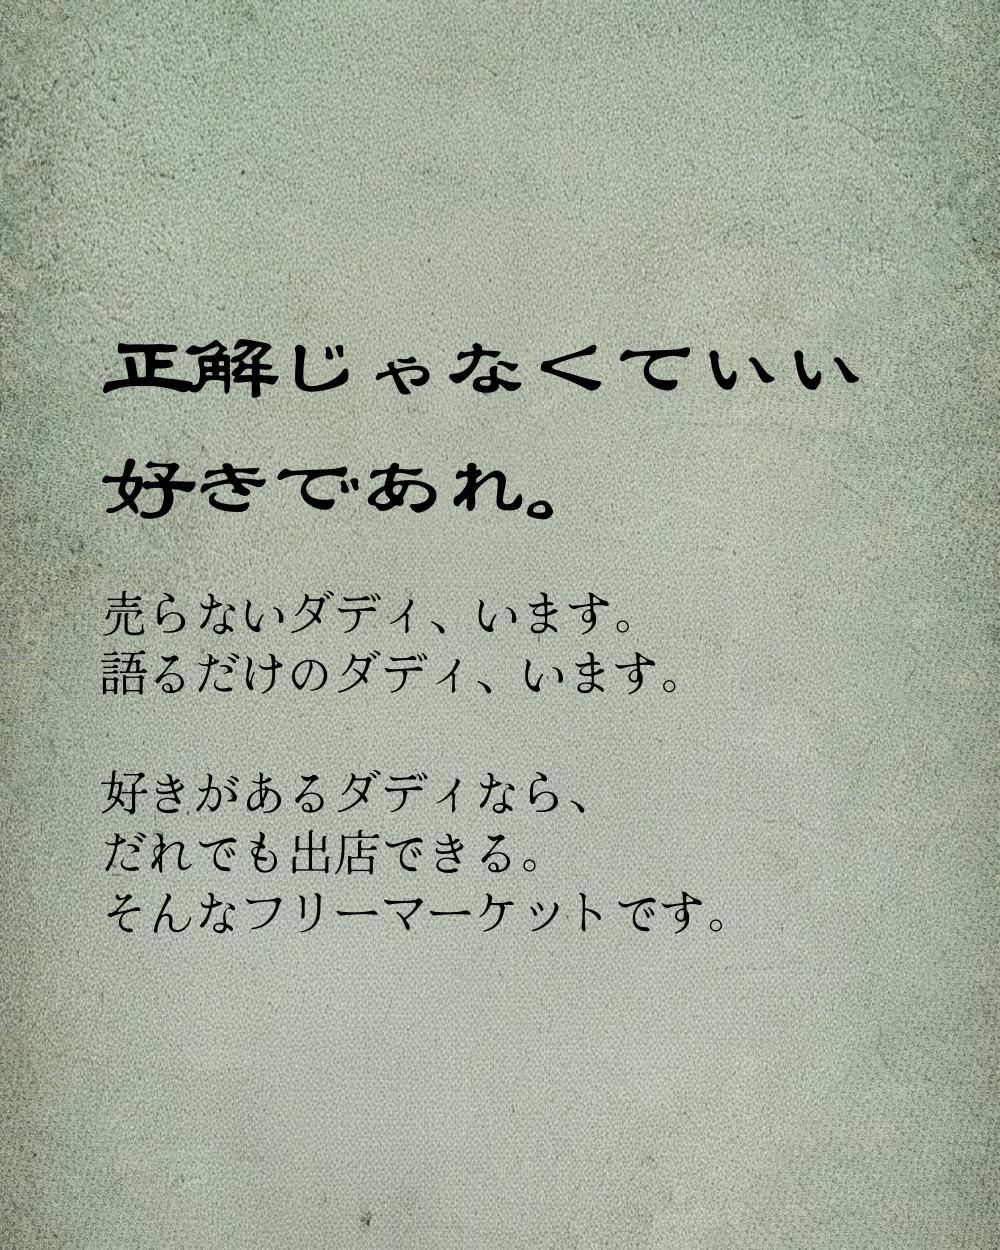 正解じゃなくていい
好きであれ。
売らないダディ、います。
語るだけのダディ、います。
好きがあるダディなら、
だれでも出店できる。
そんなフリーマーケットです。